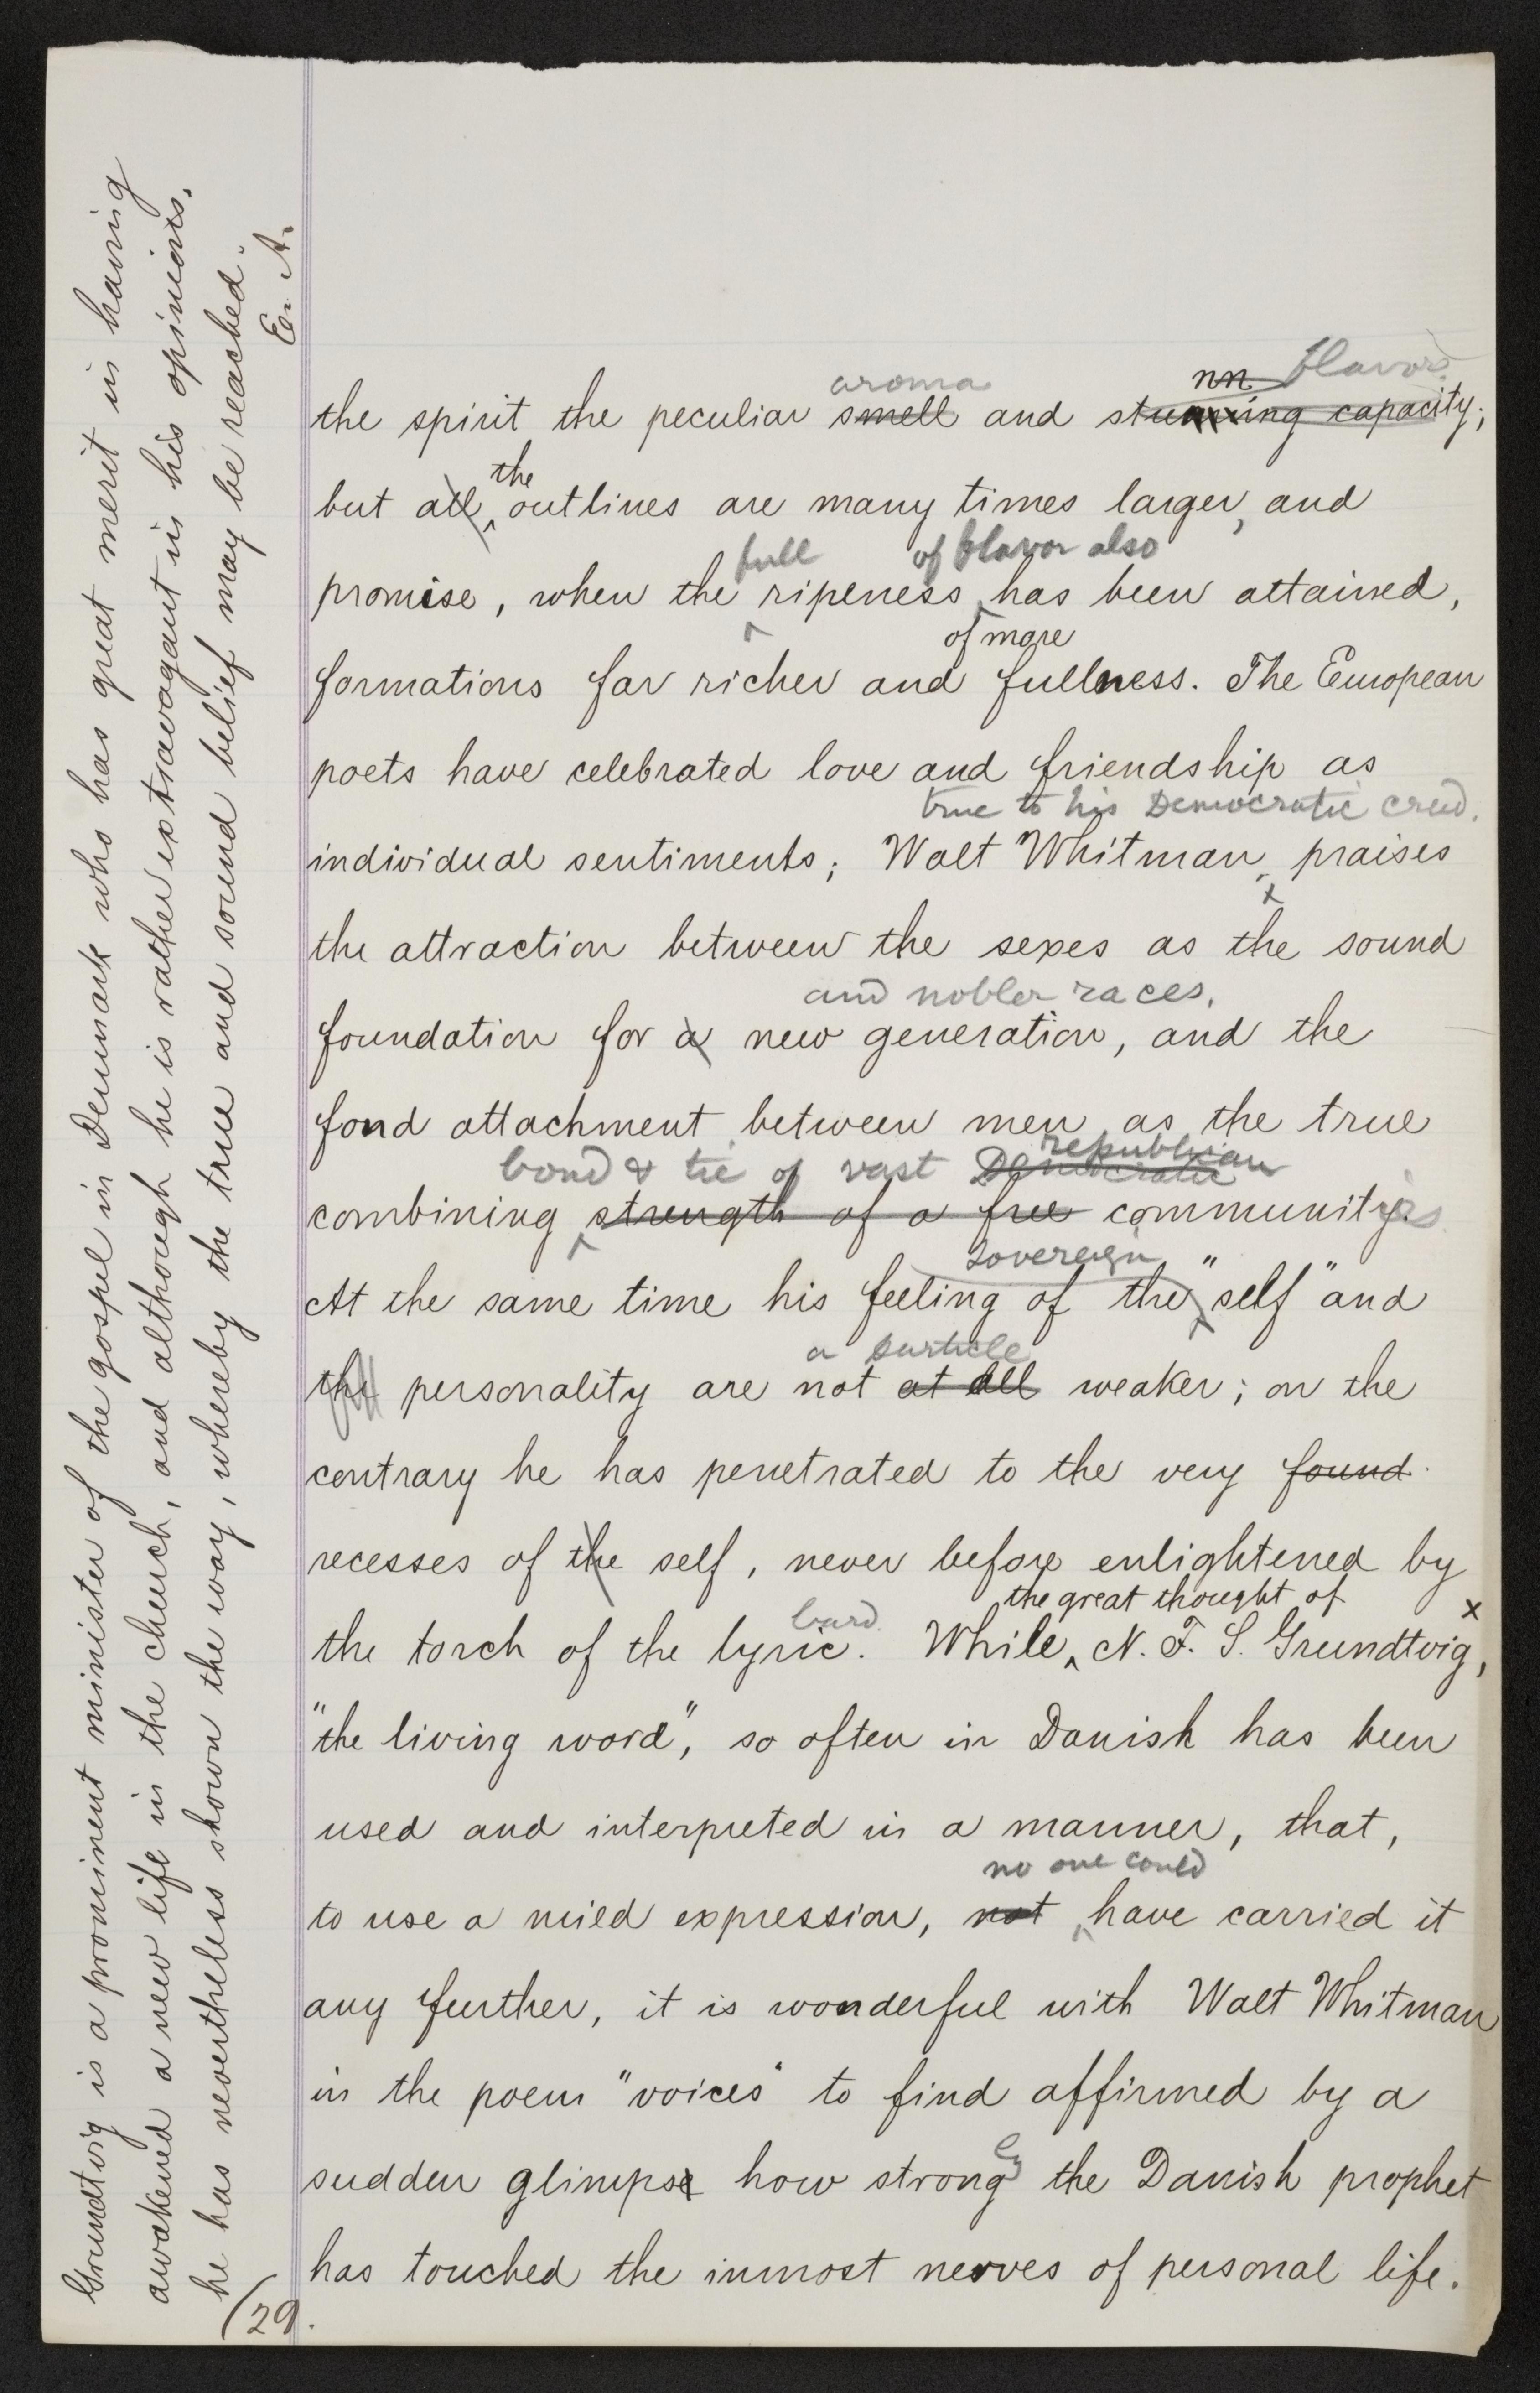 aroma nn flavor
the spirit the peculiar smell and stunning capacity;
the
but all outlines are many times larger, and
full of flavor also
promise, when the ripeness has been attained,
of more
formations far richer and fullness. The European
poets have celebrated love and friendship as
true to his Democratic creed.
individual sentiments; Walt Whitman, praises
x
the attraction between the sexes as the sound
and nobler races,
foundation for a new generation, and the
fond attachment between men as the true
republican
bond & tie of vast Democratic
combining strength of a free communities
sovereign
At the same time his feeling of the "self" and
a particle
the personality are not at all weaker; on the
contrary he has penetrated to the very found
recesses of the self, never before enlightened by
the great thought of x
bard.
the torch of the lyric. While N. F. S. Grundtvig,
"the living word", so often in Danish has been
used and interpreted in a manner, that,
no one could
to use a mild expression, not have carried it
any further, it is wonderful with Walt Whitman
in the poem "voices" to find affirmed by a
sudden glimpse how strongly the Danish prophet
has touched the inmost nerves of personal life.
Grundtvig is a prominent minister of the gospel in Denmark who has great merit in having
awakened a new life in the church, and although he is rather extravagant in his opinions,
he has nevertheless shown the way, whereby the true and sound belief may be reached.
E. A.
(29.